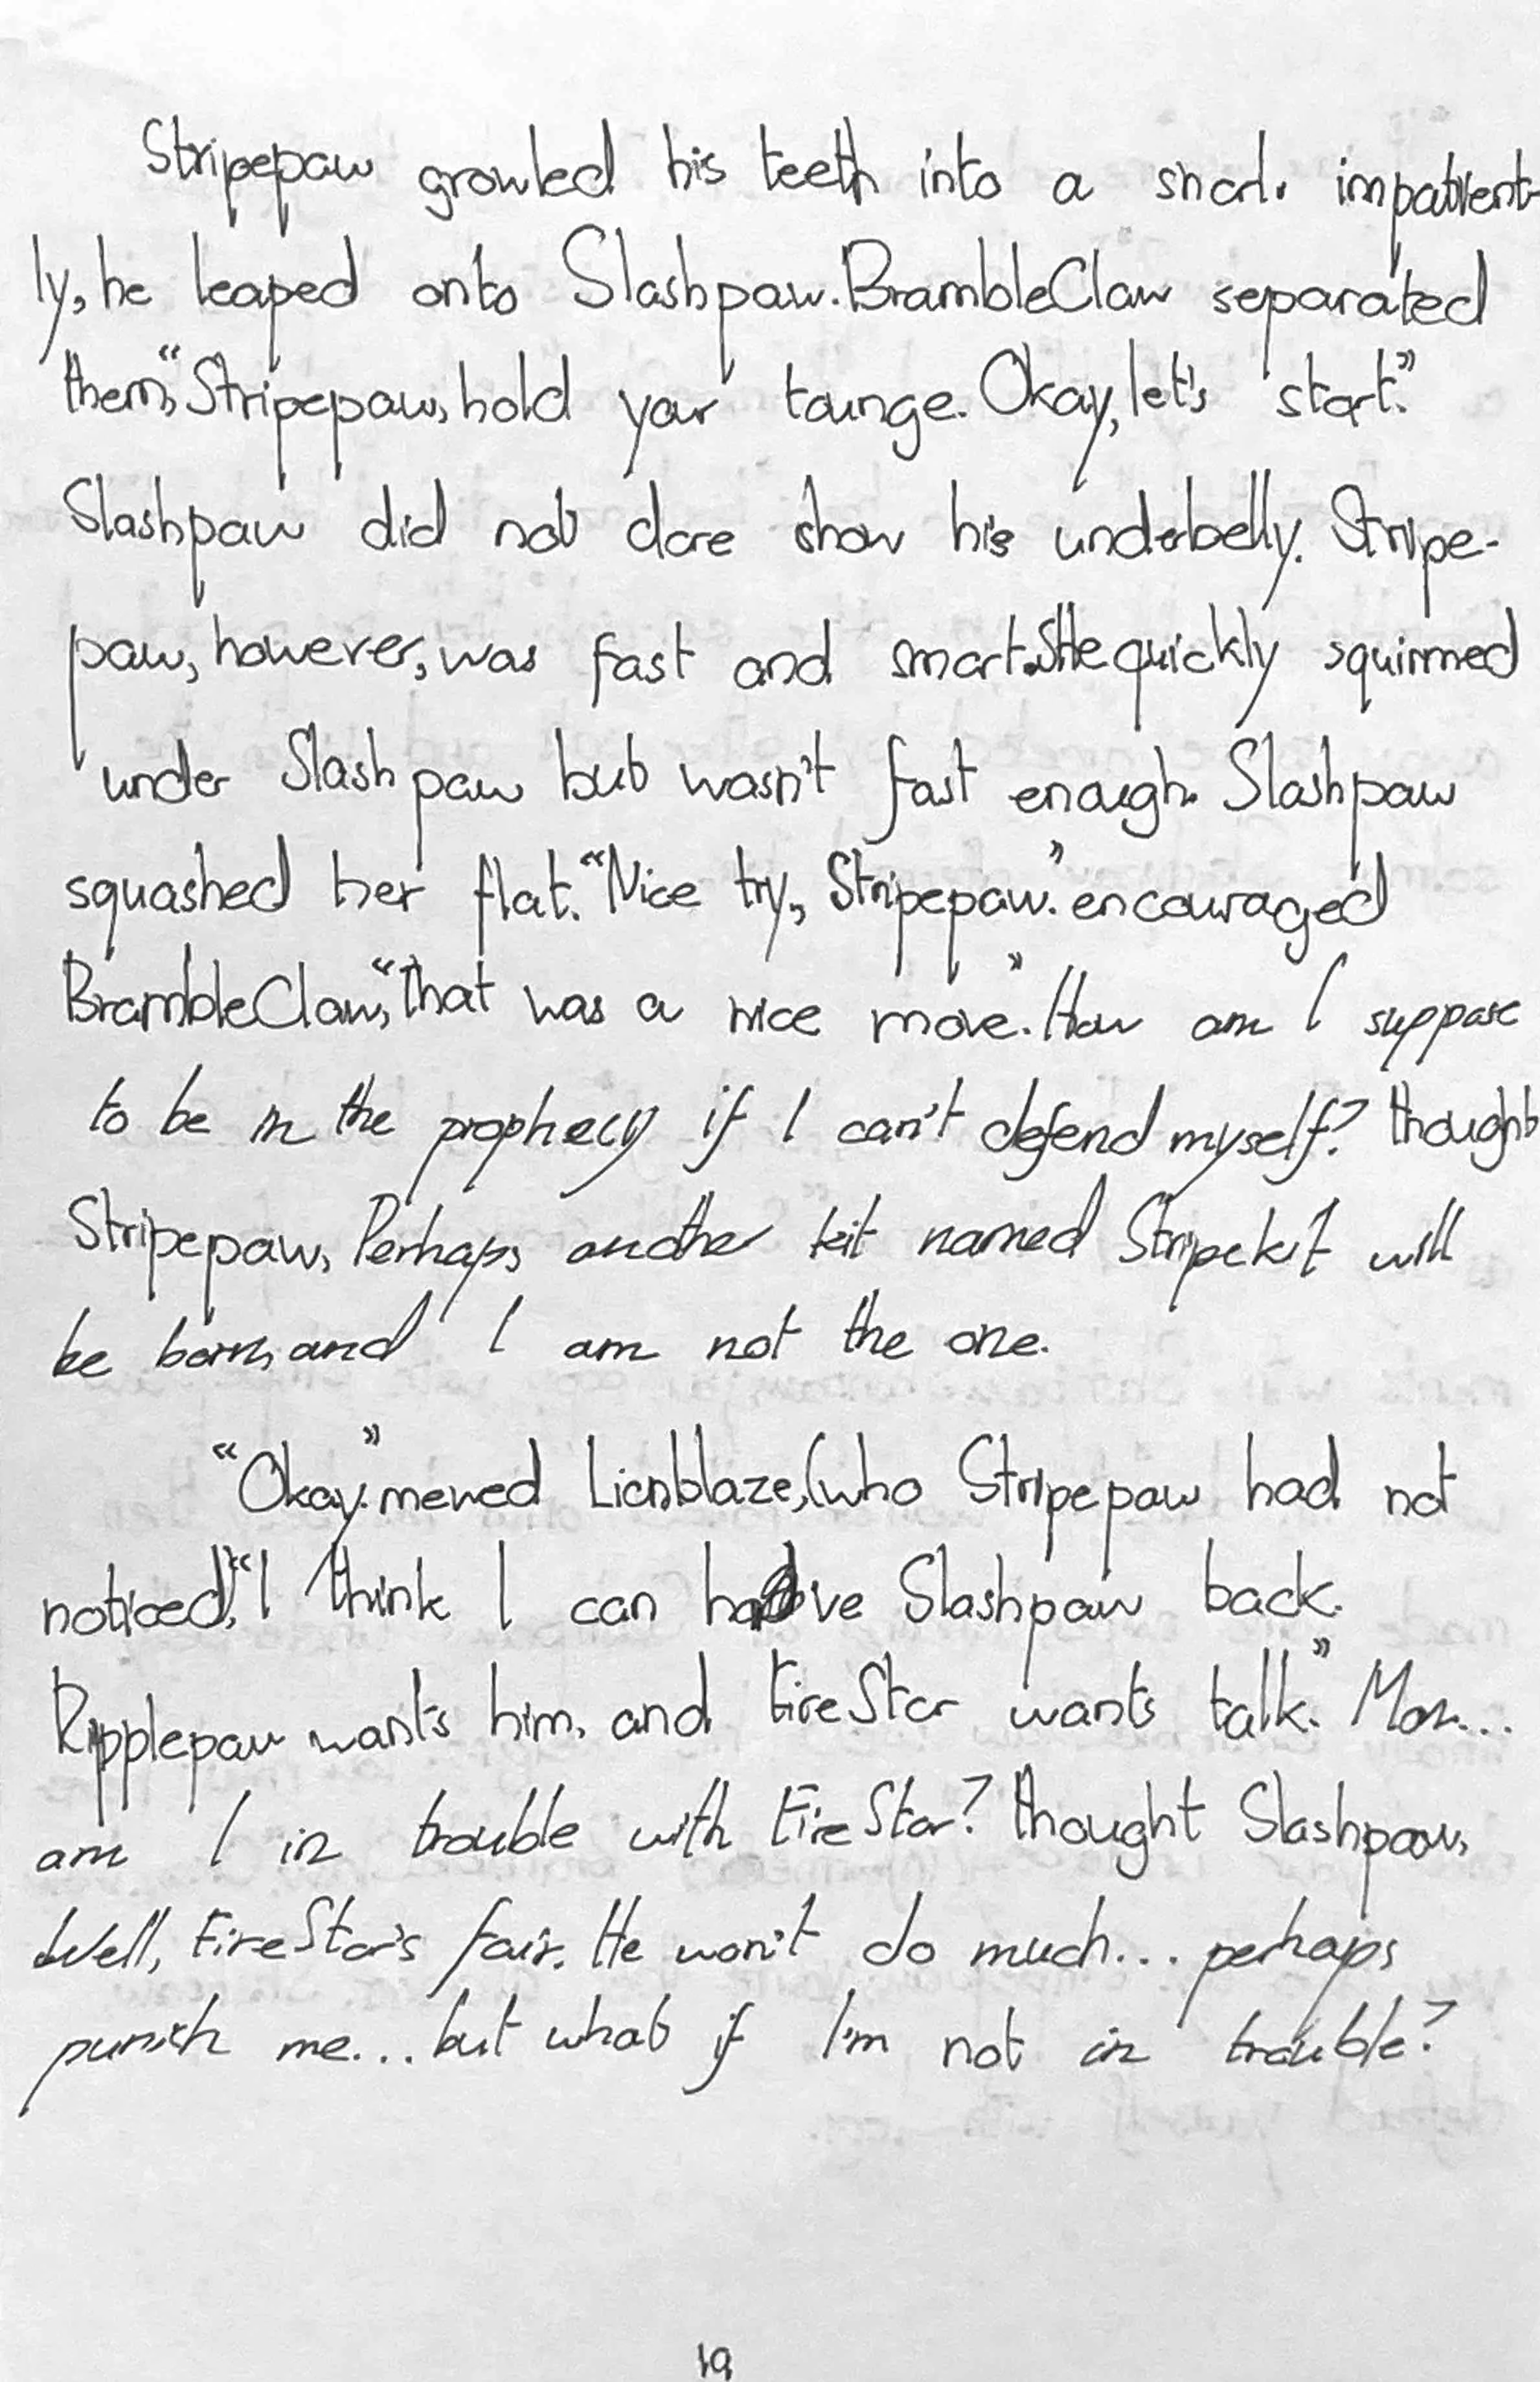 Stripepaw growled his teeth into a snarl. impatient-
ly, he leaped onto Slashpaw. BrambleClaw separated
them, “Stripepaw, hold your tounge. Okay, let's start.”
Slashpaw did not dare show his underbelly. Stripe-
paw, however, was fast and smart. She quickly squirmed
under Slashpaw but wasn't fast enough. Slashpaw
squashed her flat. “Nice try, Stripepaw.” encouraged
BrambleClaw, “that was a nice move.” How am I suppose
to be in the prophecy if I can't defend myself? thought
Stripepaw, Perhaps another kit named Stripekit will
be born, and I am not the one.
“Okay.” mewed Lionblaze, (who Stripepaw had not
noticed), “I think I can have Slashpaw back.
Ripplepaw wants him, and FireStar wants talk.” Mom...
am I in trouble with FireStar? thought Slashpaw,
Well, FireStar's fair. He won't do much... perhaps
punish me... but what if I'm not in trouble?
19